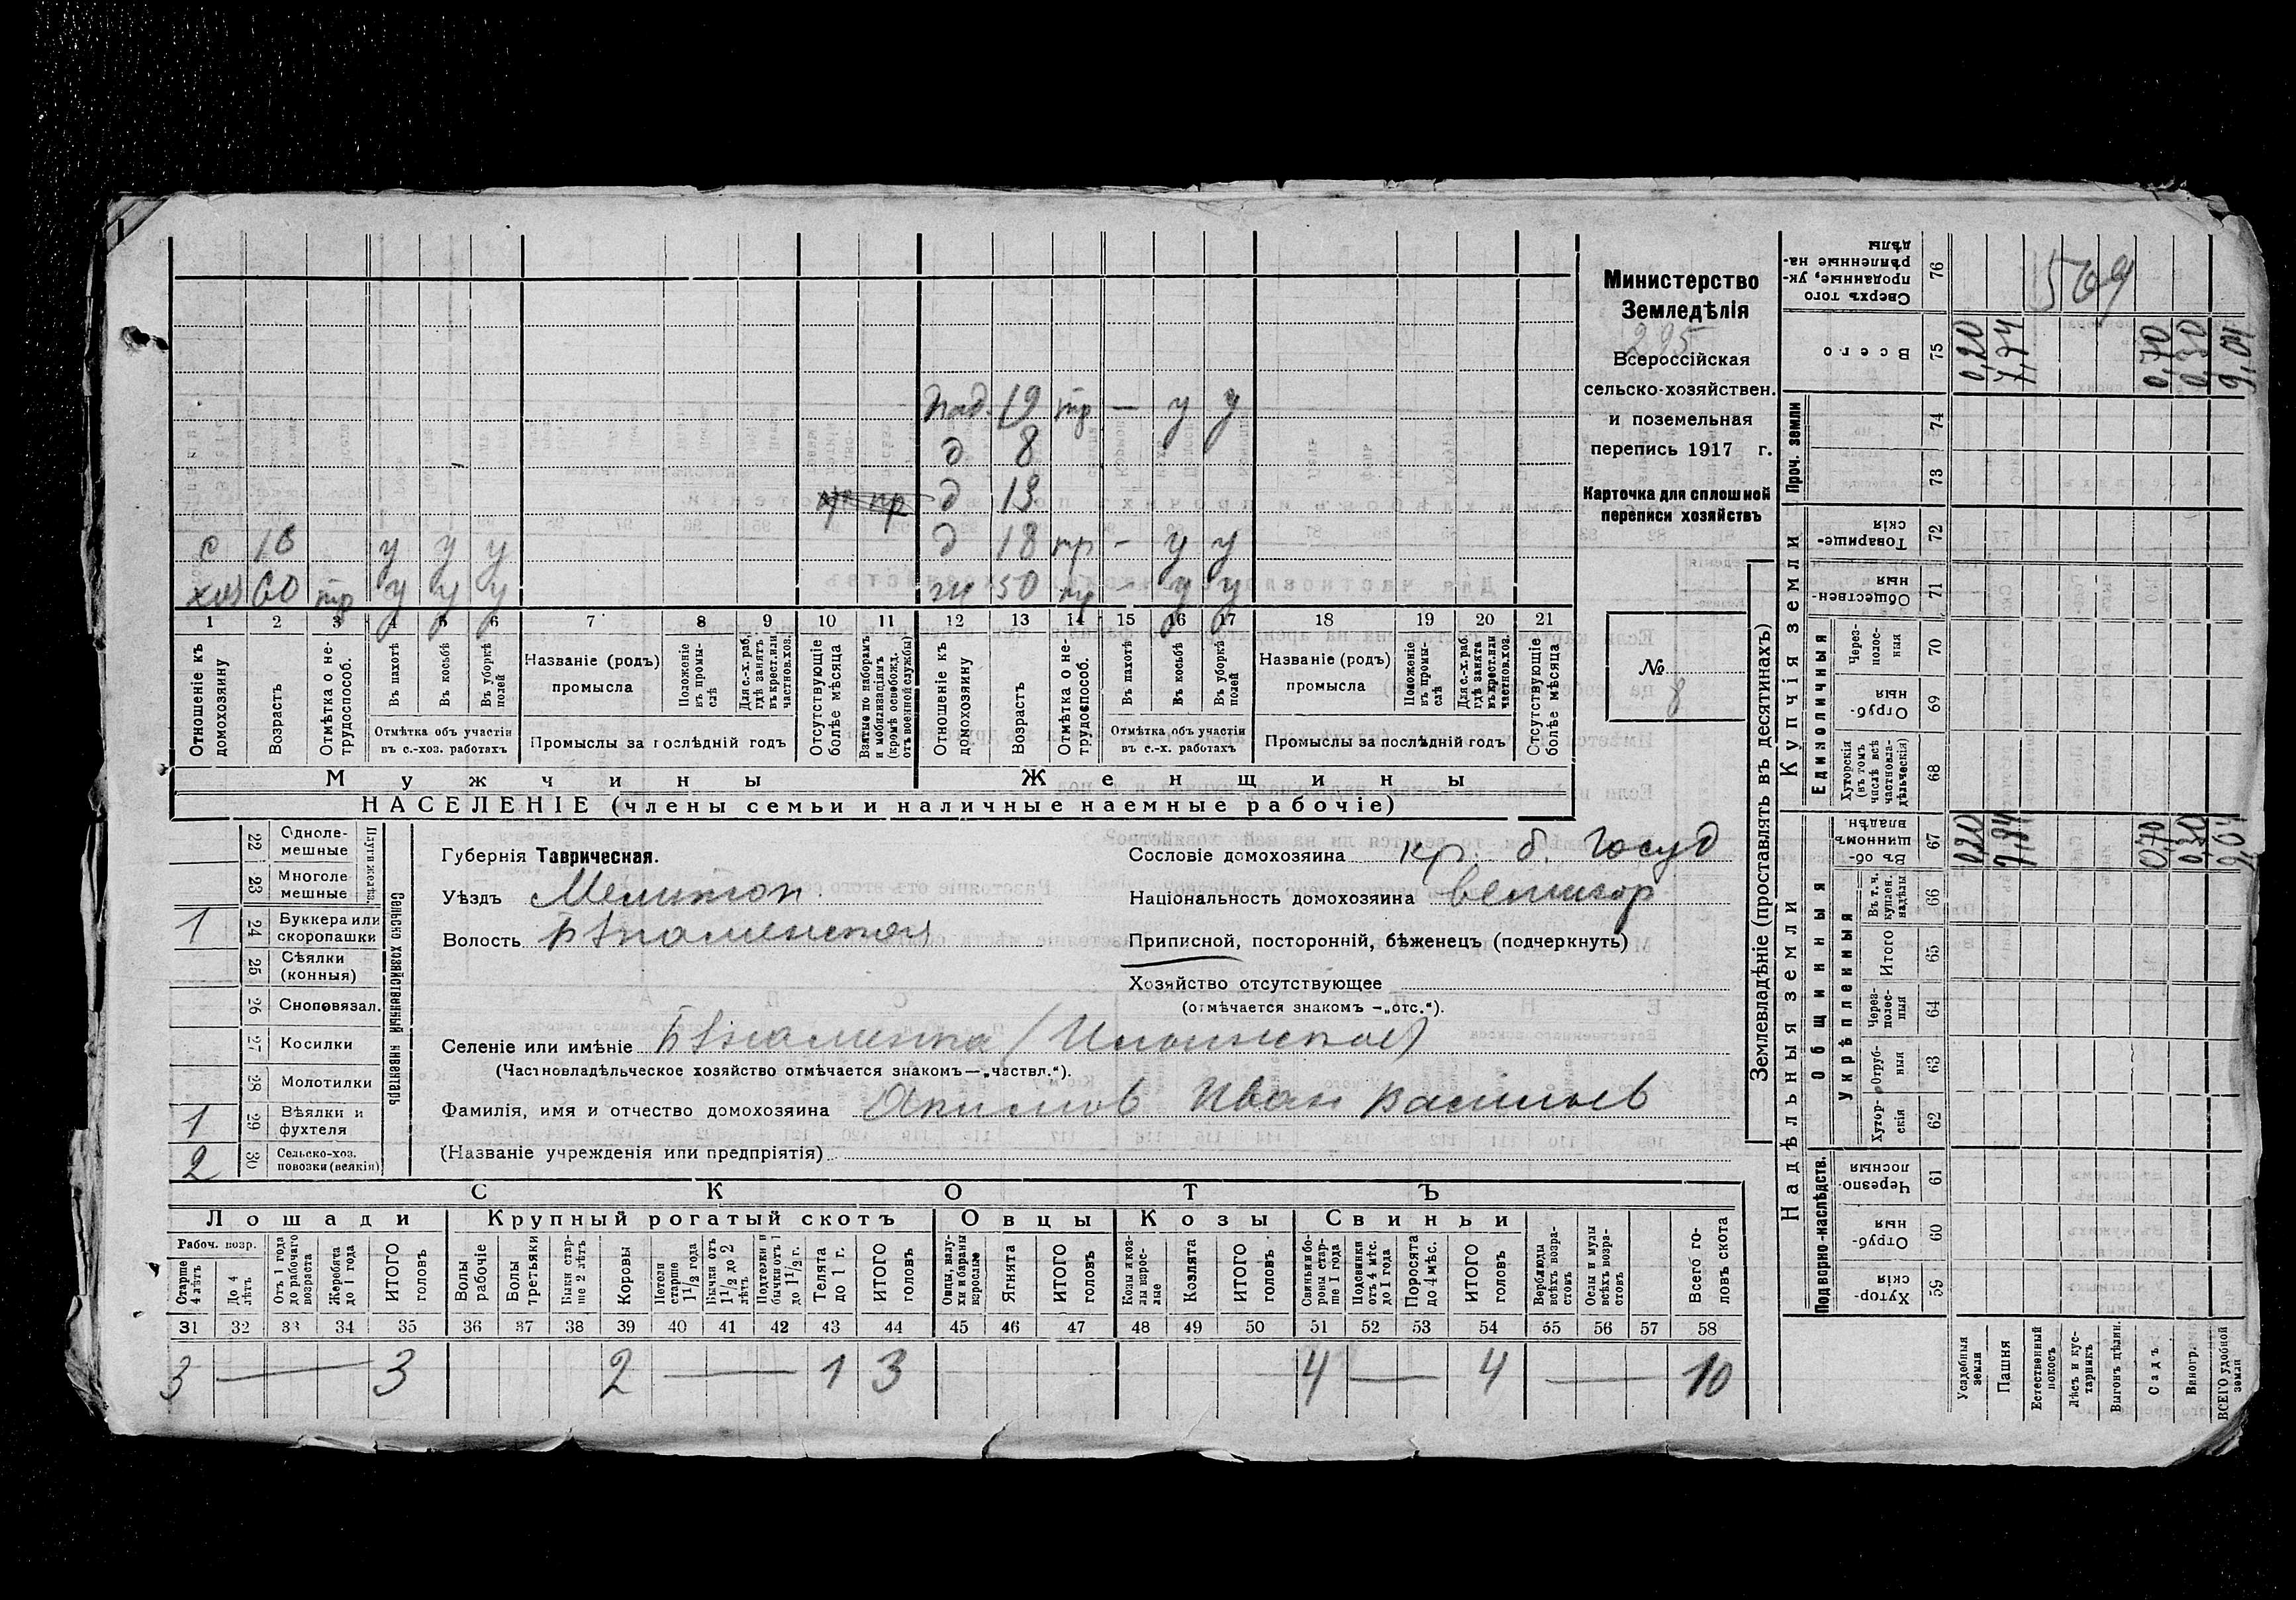 Министерство
Земледѣлія
295
Всероссійская
сельско-хозяйствен.
и поземельная
перепись 1917 г.
Карточка для сплошной
переписи хозяйствъ
№
8
569
под. 19 тр — у у
д 8
пр д 13
с 16 у у у д 18 тр - у у
хоз 60 тр у у у ж 50 тр - у у
1 2 3 4 5 6 7 8 9 10 11 12 13 14 15 16 17 18 19 20 21
Отношеніе къ домохозяину
Возрастъ
Отмѣтка о не-трудоспособ.
Въ пахотѣ
Въ косьбѣ
Въ уборкѣ полей
Отмѣтка объ участіи въ с.-хоз. работахъ
Названіе (родъ) промысла
Положеніе въ промы-слѣ
Для с.-х. раб. гдѣ занятъ въ крест. или частнов. хоз.
Промыслы за послѣдній годъ
Отсутствующіе болѣе мѣсяца
Взятые по наборамъ и мобилизаціямъ (кромѣ освобожд. отъ военной службы)
Отношеніе къ домохозяину
Возрастъ
Отмѣтка о не-трудоспособ.
Въ пахотѣ
Въ косьбѣ
Въ уборкѣ полей
Отмѣтка объ участіи въ с.-х. работахъ
Названіе (родъ) промысла
Положеніе въ промы-слѣ
Для с.-х. раб. гдѣ занята въ крест. или частнов. хоз.
Промыслы за послѣдній годъ
Отсутствующіе болѣе мѣсяца
Мужчины Женщины
НАСЕЛЕНІЕ (члены семьи и наличные наемные рабочіе)
Сельско хозяйственный инвентарь
22 Одноле-мешные
23 Многоле мешные
1 24 Буккера или скоропашки
25 Сѣялки (конныя)
26 Сноповязал.
27 Косилки
28 Молотилки
1 29 Вѣялки и фухтеля
2 30 Сельско-хоз. повозки (всякія)
Губернія Таврическая.
Уѣздъ Мелитоп.
Волость Бѣпаменская
Сословіе домохозяина кр. б. Госуд
Національность домохозяина великор
Приписной, посторонній, бѣженецъ (подчеркнуть)
Хозяйство отсутствующее
(отмѣчается знакомъ —„отс.“).
Селеніе или имѣніе
(Частновладѣльческое хозяйство отмѣчается знакомъ—„частвл.“).
Фамилія, имя и отчество домохозяина Акимов Иван Васильев
(Названіе учрежденія или предпріятія)
СКОТЪ
Лошади Крупный рогатый скотъ Овцы Козы Свиньи
Рабоч. возр.
Старше 4 лѣтъ
До 4 лѣтъ
Отъ 1 года до рабочаго возраста
Жеребята до 1 года
ИТОГО головъ
Волы рабочіе
Волы третьяки
Быки стар-ше 2 лѣтъ
Коровы
Нетели старше 1 1/2 года
Бычки отъ 1 1/2 до 2 лѣтъ
Подтелки и бычки отъ 1 до 1 1/2 г.
Телята до 1 г.
ИТОГО головъ
Овцы, валу-хи и бараны взрослые
Ягнята
ИТОГО головъ
Козы и коз-лы взрос-лые
Козлята
ИТОГО головъ
Свиньи и бо-ровы стар-ше 1 года
Подсвинки отъ 4 мѣс. до 1 года
Поросята до 4 мѣс.
ИТОГО головъ
Верблюды всѣхъ возра-стовъ
Ослы и мулы всѣхъ возра-стовъ
Всего го-ловъ скота
31 32 33 34 35 36 37 38 39 40 41 42 43 44 45 46 47 48 49 50 51 52 53 54 55 56 57 58
3 — 3 2 — 1 3 4 — 4 — 10
Землевладѣніе (проставлять въ десятинахъ)
Надѣльныя земли Купчія земли Проч. земли
Подворно-наслѣдств. Общинныя Единоличныя
Укрѣпленныя
Хутор-скія 59
Отруб-ныя 60
Черезпо-лосныя 61
Хутор-скія 62
Отруб-ныя 63
Через-полос-ныя 64
Итого 65
Въ т. ч. куплен. надѣлы 66
Въ об-щинномъ владѣн. 67
Хуторскія (въ томъ числѣ всѣ частновла-дѣльческія) 68
Отруб-ныя 69
Через-полос-ныя 70
Обществен-ныя 71
Товарище-скія 72
73
74
Всего 75
Сверхъ того проданные, ук-рѣпленные на-дѣлы 76
Усадебныя земли 0,20 0,20
Пашня 7,84
Естественный покосъ
Лѣсъ и кус-тарникъ
Выгонъ цѣлин.
Садъ 0,70 0,70
Виногр. 0,30 0,30
ВСЕГО удобной земли 9,04 9,04